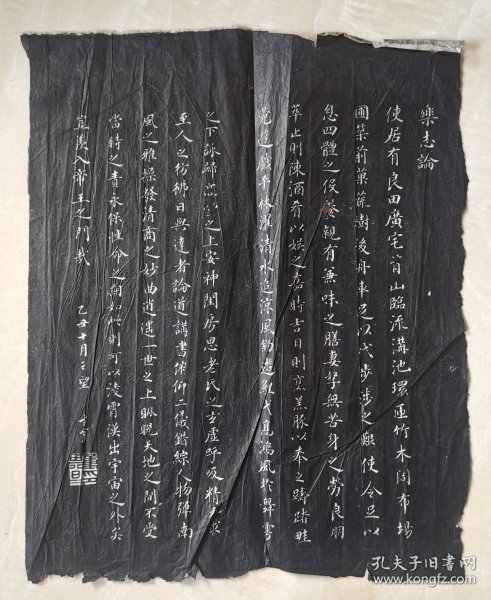 樂志論
使居有良田廣宅背山臨流溝池環匝竹木周布場
圃築前菓蔬樹後舟車足以代步涉之艱使令足以
息四體之役養親有兼味之膳妻孥無苦身之勞良朋
萃止則陳酒肴以娛之嘉時吉日則烹羔豚以奉之躊躇畦
苑遊戲平林濯清水追涼風釣遊鯉弋高鴻風於舞雩
之下詠歸高堂之上安神閨房思老氏之玄虛呼吸精和求
至人之彷彿與達者論道講書俯仰二儀錯綜人物彈南
風之雅操發清商之妙曲逍遙一世之上睥睨天地之間不受
當時之責永保性命之期如此則可以凌霄漢出宇宙之外矣
豈羨入帝王之門哉
乙丑十月
孔夫子旧书网
www.kongfz.com